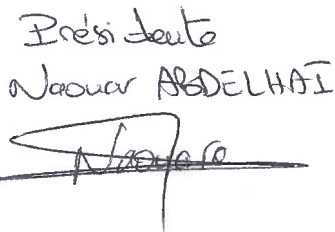 Présidente
Naouar ABDELHAÏ
Naouara